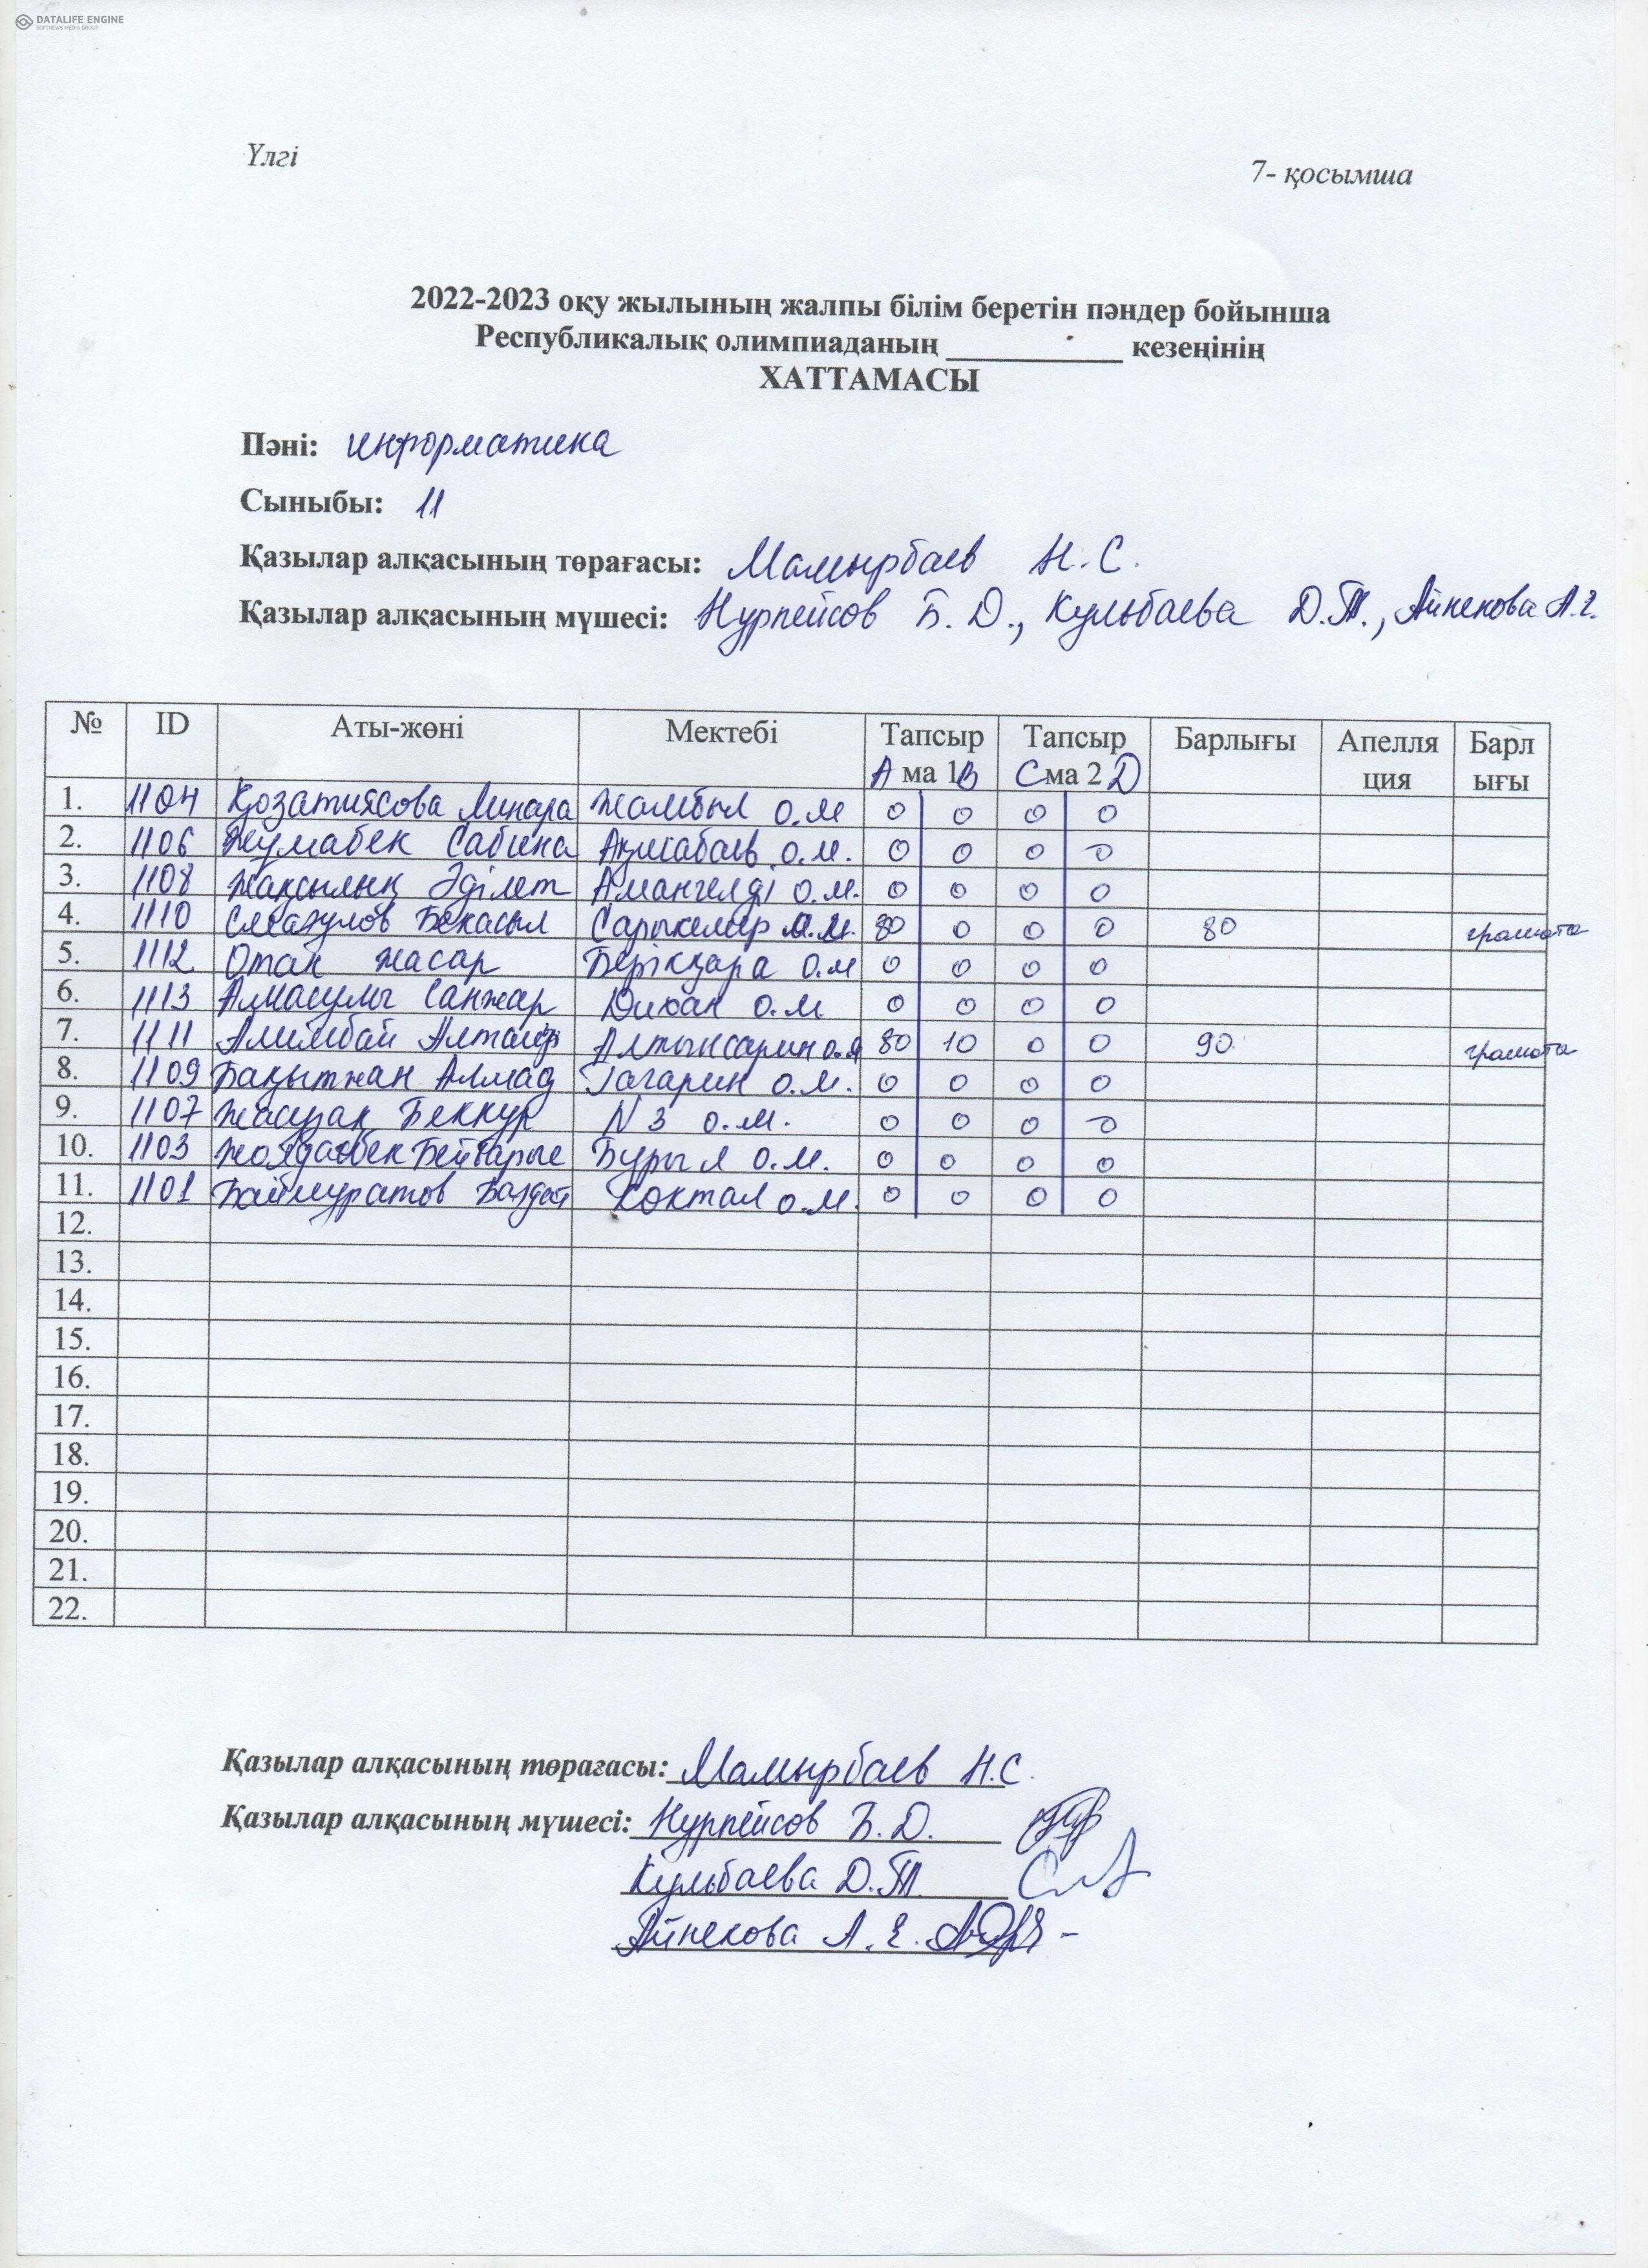 DATALIFE ENGINE
SOFTNEWS MEDIA GROUP
Үлгі
7- қосымша
2022-2023 оқу жылының жалпы білім беретін пәндер бойынша
Республикалық олимпиаданың ____________ кезеңінің
ХАТТАМАСЫ
Пәні: информатика
Сыныбы: 11
Қазылар алқасының төрағасы: Мамырбаев Н.С.
Қазылар алқасының мүшесі: Нурпейсов Б.Д., Кульбаева Д.Т., Айнекова А.Е.
№ ID Аты-жөні Мектебі Тапсыр Тапсыр Барлығы Апелля Барл
А ма 1 В С ма 2 D ция ығы
1. 1104 Минара Жамбыл о.м 0 0 0 0
2. 1106 Жумабек Сабина о.м. 0 0 0 0
3. 1108 Жақсылық Әділет Амангелді о.м. 0 0 0 0
4. 1110 Бекасыл о.м. 80 0 0 0 80 грамота
5. 1112 Отан Жасар Беріққара о.м 0 0 0 0
6. 1113 Алмасулы Санжар Дихан о.м 0 0 0 0
7. 1111 Алимбай Алтынсарин о.м 80 10 0 0 90 грамота
8. 1109 Бақытжан Алмаз Гагарин о.м. 0 0 0 0
9. 1107 Бекнур N 3 о.м. 0 0 0 0
10. 1103 Бейбарыс Бурыл о.м. 0 0 0 0
11. 1101 Баймуратов Коктал о.м. 0 0 0 0
12.
13.
14.
15.
16.
17.
18.
19.
20.
21.
22.
Қазылар алқасының төрағасы: Мамырбаев Н.С.
Қазылар алқасының мүшесі: Нурпейсов Б.Д.
Кульбаева Д.Т.
Айнекова А.Е.